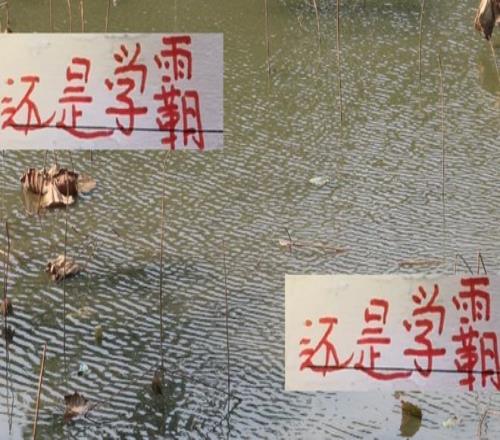 还是学霸
还是学霸